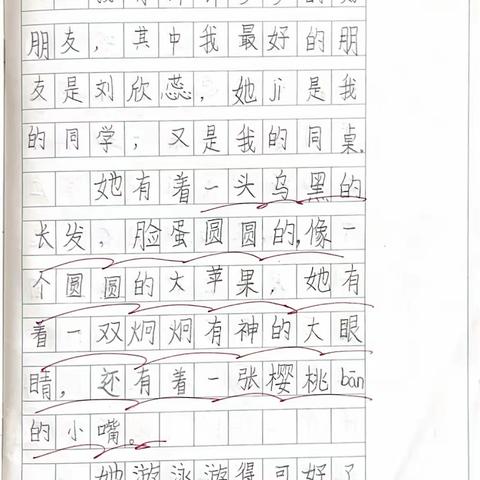 朋友，其中我最好的朋
友是刘欣蕊，她jì是我
的同学，又是我的同桌。
她有着一头乌黑的
长发，脸蛋圆圆的，像一
个圆圆的大苹果，她有
着一双炯炯有神的大眼
睛，还有着一张樱桃bān
的小嘴。
她游泳游得可好了